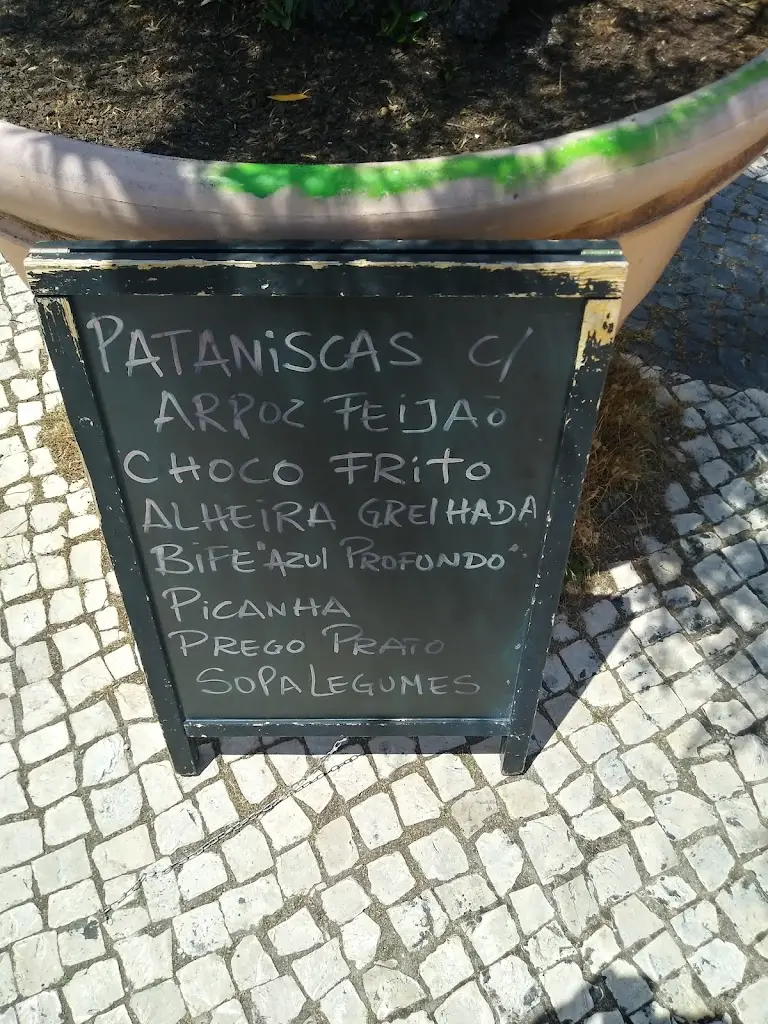 PATANISCAS C/
ARROZ FEIJAO
CHOCO FRITO
ALHEIRA GRELHADA
BIFE "AZUL PROFONDO"
PICANHA
PREGO PRATO
SOPA LEGUMES